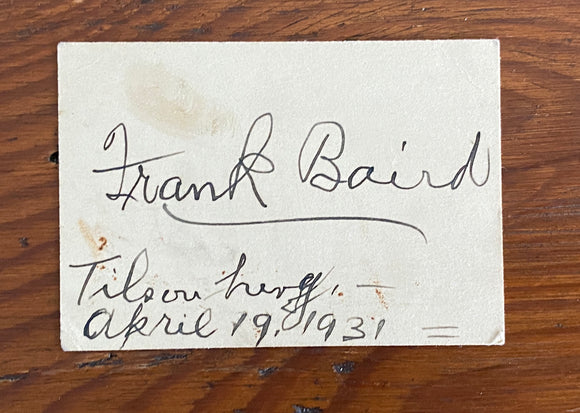 Frank Baird
Tilsonburg. —
April 19, 1931 =